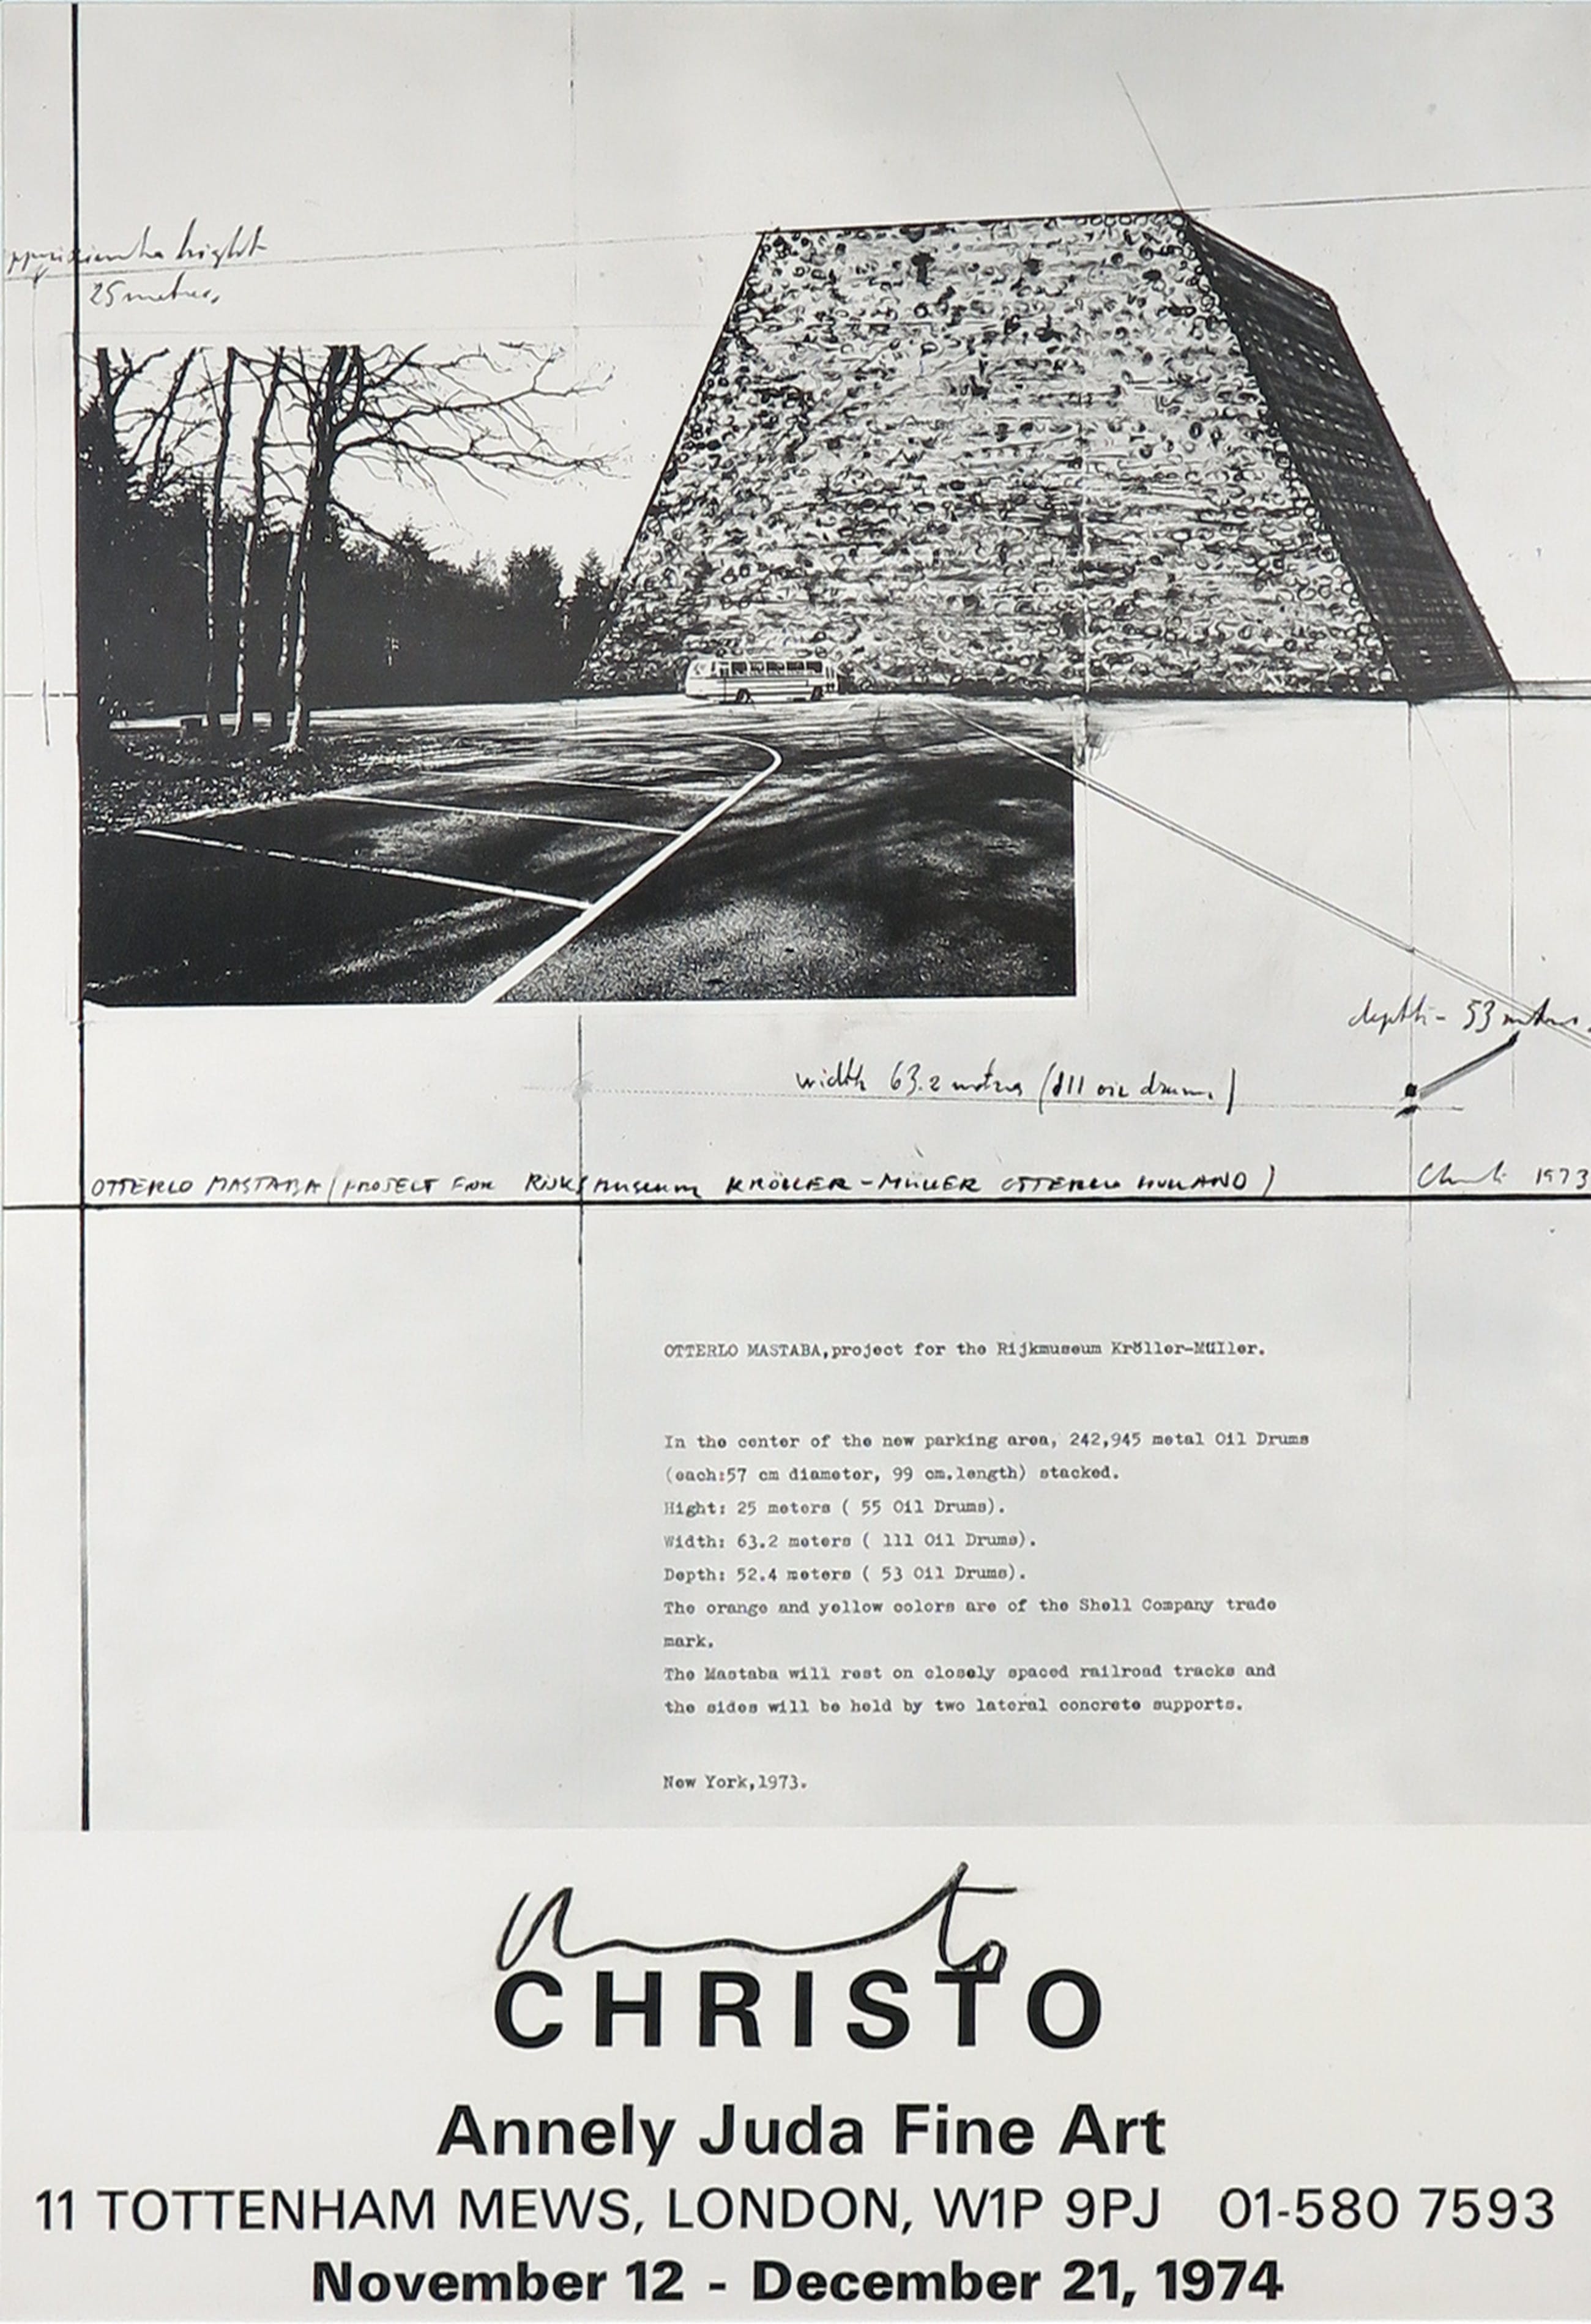 hight
25 metres,
depth - 53 metres.
width 63.2 metres (111 oil drums)
OTTERLO MASTABA (PROJECT FOR RIJKSMUSEUM KRÖLLER-MÜLLER OTTERLO HOLLAND) Christo 1973
OTTERLO MASTABA,project for the Rijkmuseum Kröller-Müller.
In the center of the new parking area, 242,945 metal Oil Drums
(each:57 cm diameter, 99 cm.length) stacked.
Hight: 25 meters ( 55 Oil Drums).
Width: 63.2 meters ( 111 Oil Drums).
Depth: 52.4 meters ( 53 Oil Drums).
The orange and yellow colors are of the Shell Company trade
mark.
The Mastaba will rest on closely spaced railroad tracks and
the sides will be held by two lateral concrete supports.
New York,1973.
Christo
CHRISTO
Annely Juda Fine Art
11 TOTTENHAM MEWS, LONDON, W1P 9PJ 01-580 7593
November 12 - December 21, 1974